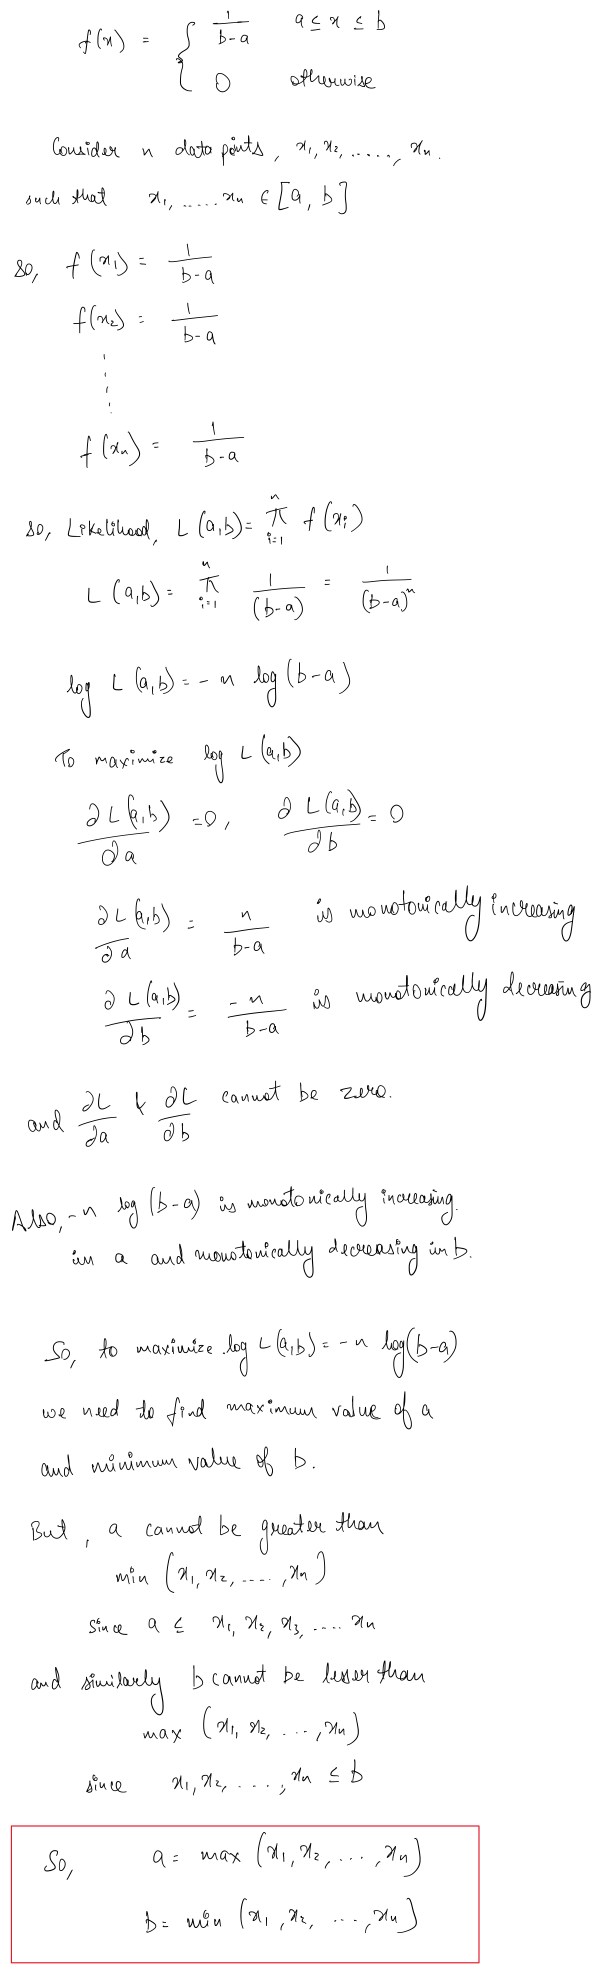 f(x) = { 1/(b-a)  a ≤ x ≤ b
0  otherwise
Consider n data points, x₁, x₂, ....., xₙ.
such that x₁, ..... xₙ ∈ [a, b]
so, f(x₁) = 1/(b-a)
f(x₂) = 1/(b-a)
f(xₙ) = 1/(b-a)
so, Likelihood, L(a,b) = ∏ᵢ₌₁ⁿ f(xᵢ)
L(a,b) = ∏ᵢ₌₁ⁿ 1/(b-a) = 1/(b-a)ⁿ
log L(a,b) = - n log(b-a)
To maximize log L(a,b)
∂L(a,b)/∂a = 0, ∂L(a,b)/∂b = 0
∂L(a,b)/∂a = n/(b-a) is monotonically increasing
∂L(a,b)/∂b = -n/(b-a) is monotonically decreasing
and ∂L/∂a & ∂L/∂b cannot be zero.
Also, -n log(b-a) is monotonically increasing.
in a and monotonically decreasing in b.
So, to maximize log L(a,b) = -n log(b-a)
we need to find maximum value of a
and minimum value of b.
But, a cannot be greater than
min (x₁, x₂, ...., xₙ)
since a ≤ x₁, x₂, x₃, .... xₙ
and similarly b cannot be lesser than
max (x₁, x₂, ..., xₙ)
since x₁, x₂, ...., xₙ ≤ b
So, a = max (x₁, x₂, ..., xₙ)
b = min (x₁, x₂, ..., xₙ)